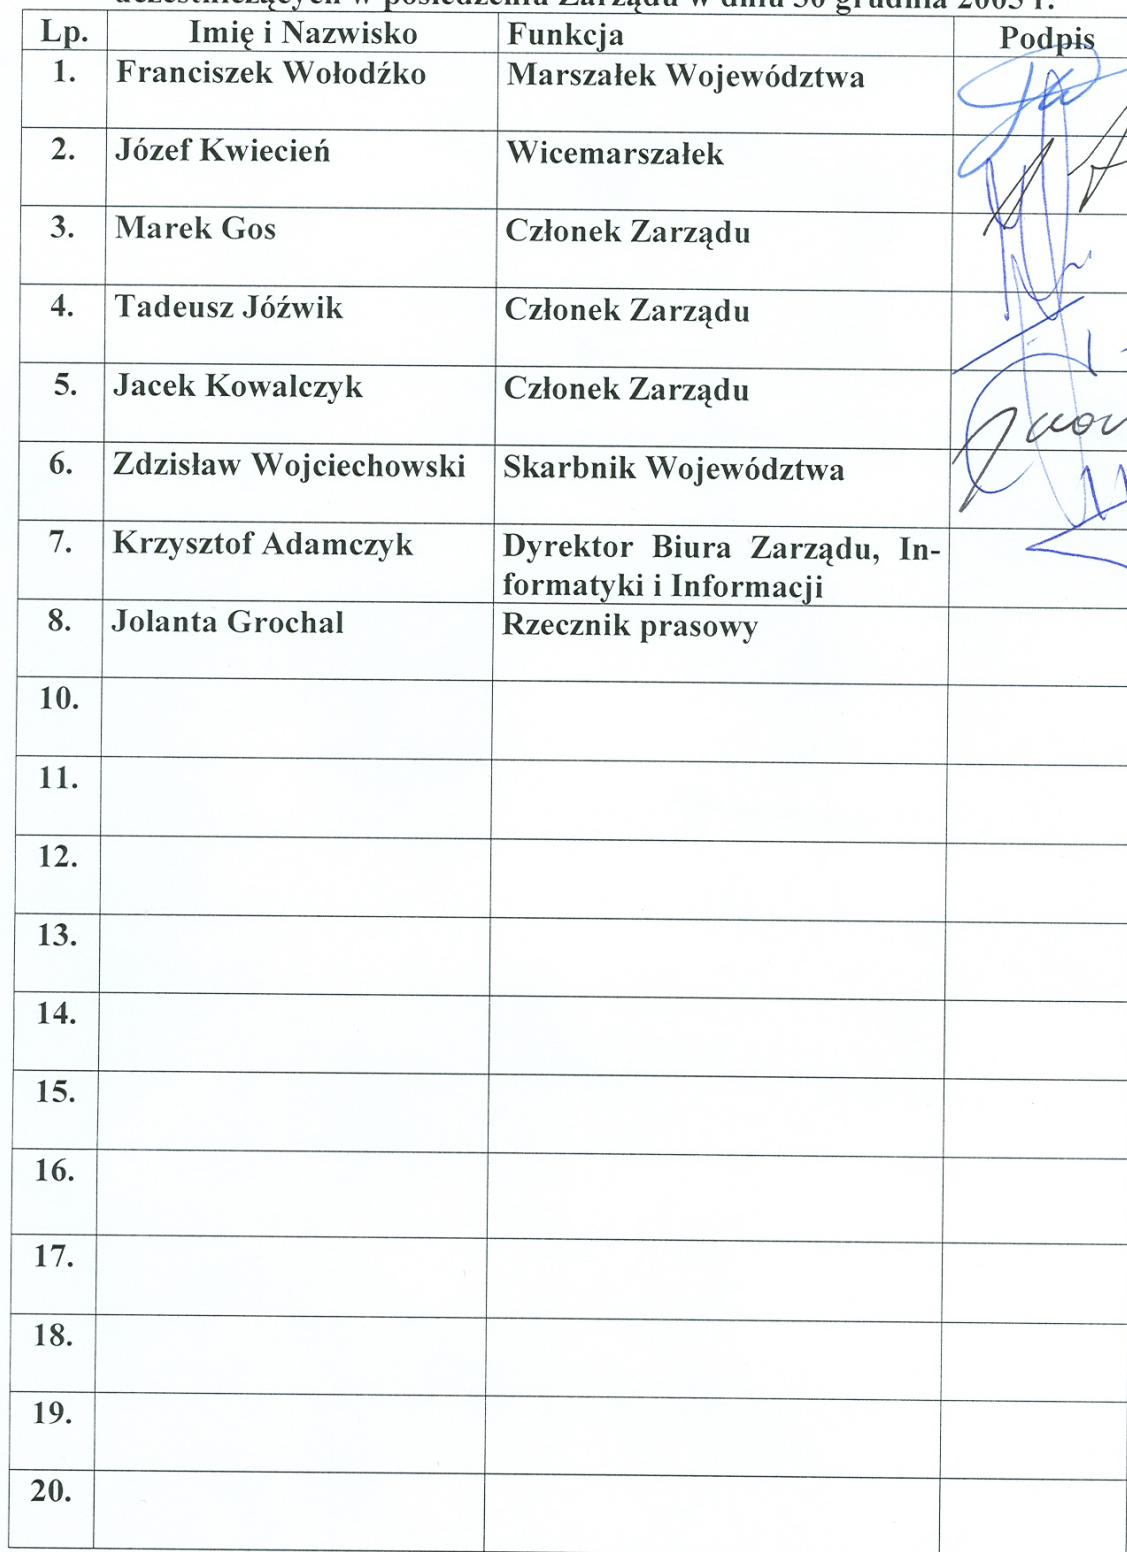 uczestniczących w posiedzeniu Zarządu w dniu 30 grudnia 2005 r.
Lp. Imię i Nazwisko Funkcja Podpis
1. Franciszek Wołodźko Marszałek Województwa
2. Józef Kwiecień Wicemarszałek
3. Marek Gos Członek Zarządu
4. Tadeusz Jóźwik Członek Zarządu
5. Jacek Kowalczyk Członek Zarządu
6. Zdzisław Wojciechowski Skarbnik Województwa
7. Krzysztof Adamczyk Dyrektor Biura Zarządu, In-
formatyki i Informacji
8. Jolanta Grochal Rzecznik prasowy
10.
11.
12.
13.
14.
15.
16.
17.
18.
19.
20.